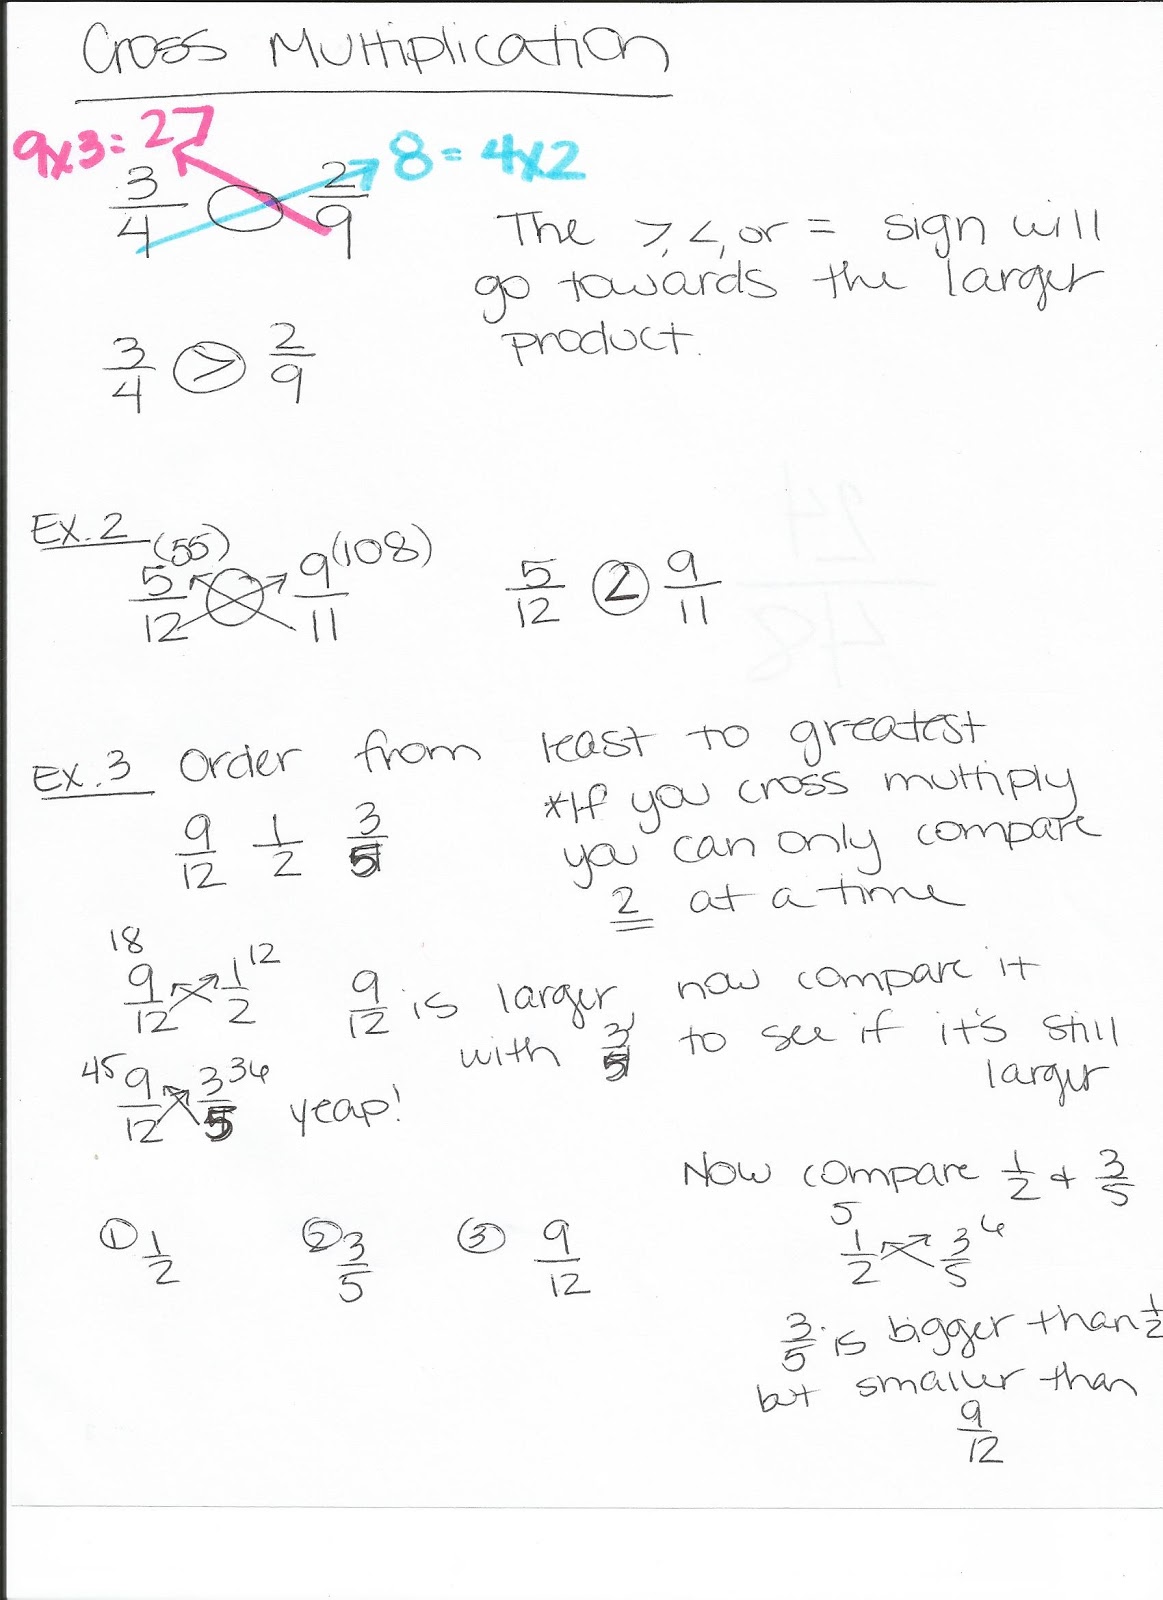 Cross Multiplication
9x3=27
8=4x2
3/4 ○ 2/9
The >, <, or = sign will
go towards the larger
product.
3/4 > 2/9
Ex. 2
(55) (108)
5/12 ○ 9/11
5/12 < 9/11
24/48
Ex. 3 Order from least to greatest
9/12 1/2 3/5
*If you cross multiply
you can only compare
2 at a time
18 12
9/12 1/2
9/12 is larger, now compare it
with 3/5 to see if it's still
larger
45 9/12 3/5 36 yeap!
Now compare 1/2 + 3/5
5 6
1/2 3/5
① 1/2 ② 3/5 ③ 9/12
3/5 is bigger than 1/2
but smaller than
9/12